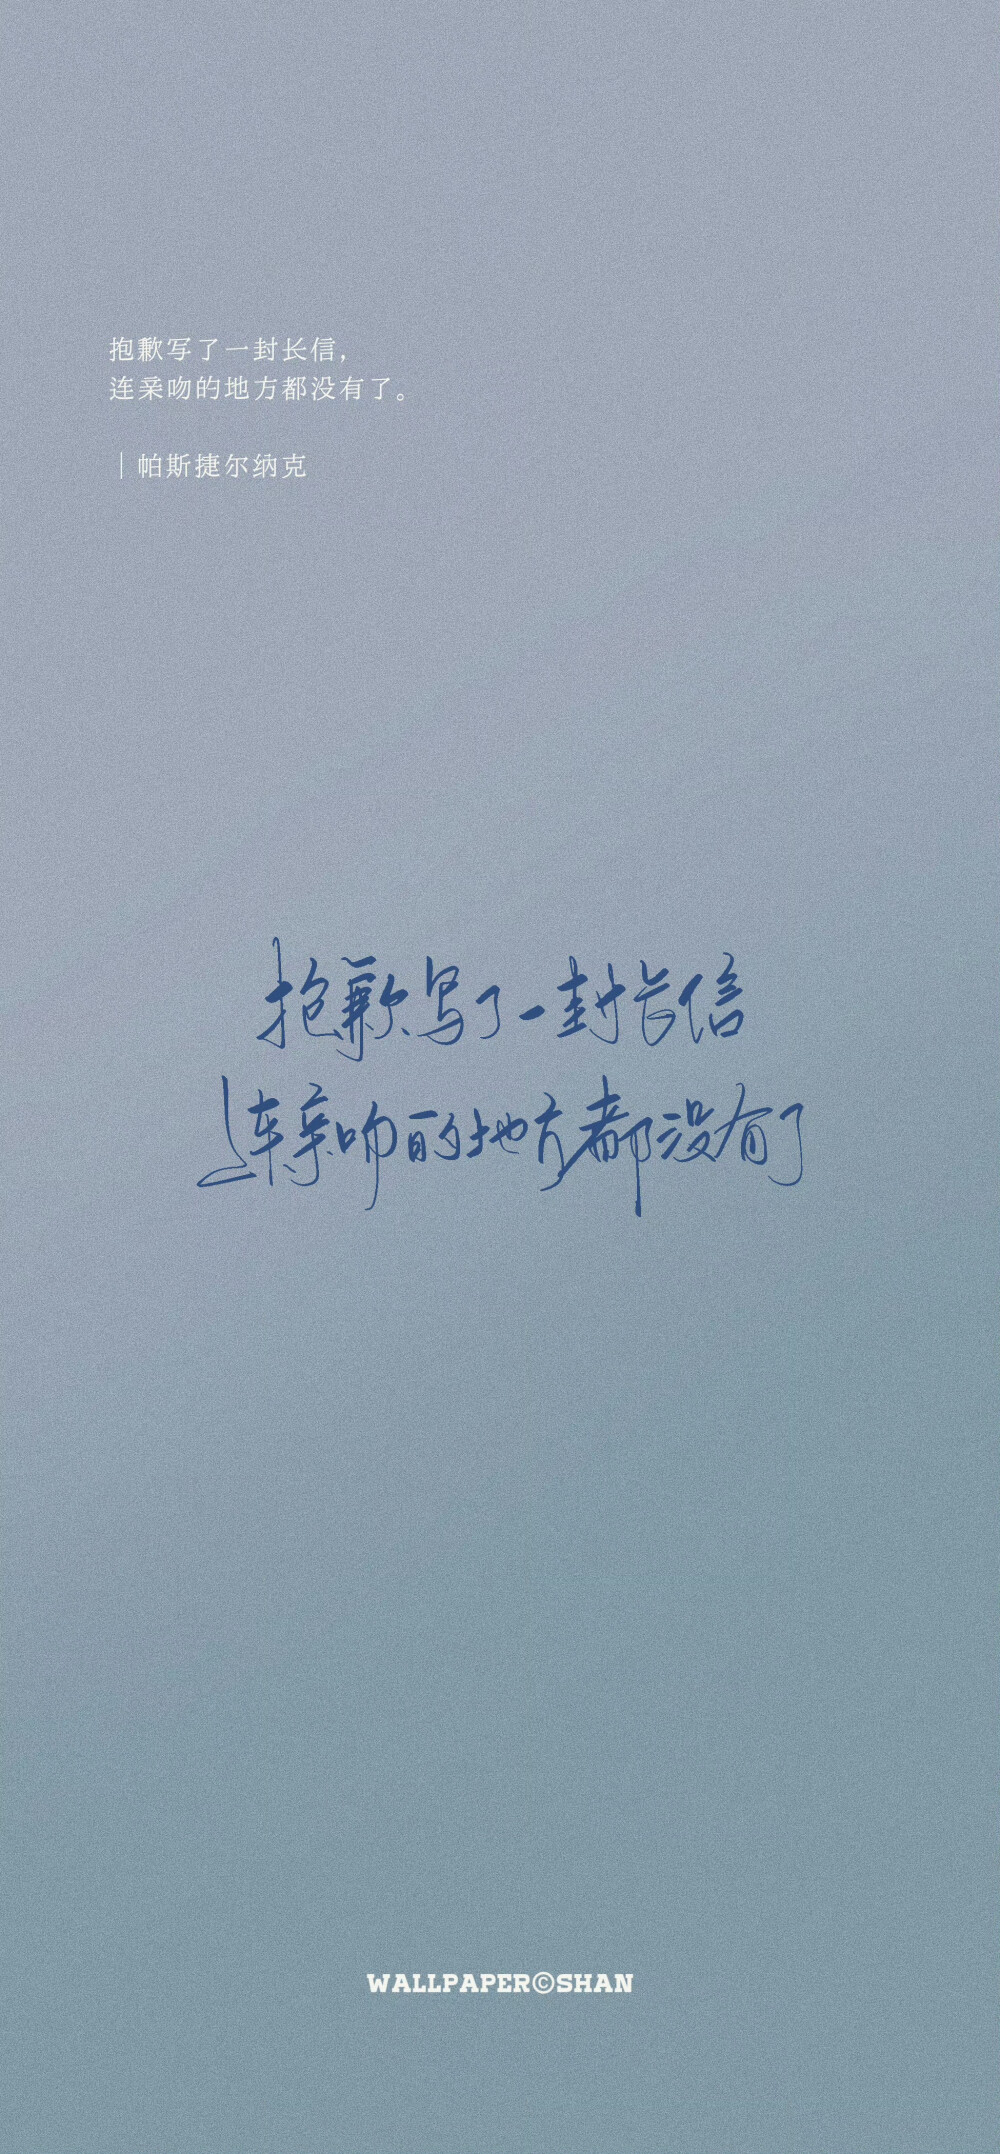 抱歉写了一封长信，
连亲吻的地方都没有了。
｜帕斯捷尔纳克
抱歉写了一封长信
连亲吻的地方都没有了
WALLPAPER©SHAN